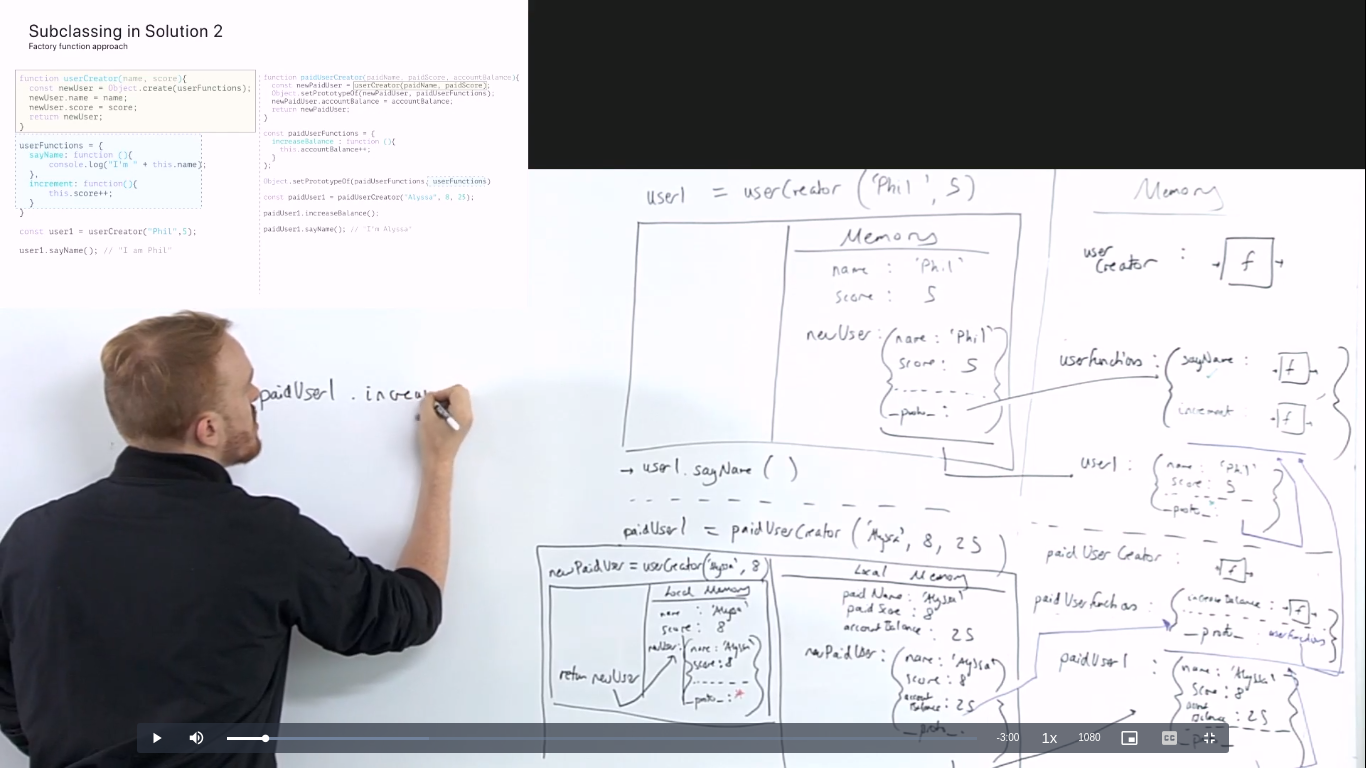 Subclassing in Solution 2
Factory function approach
function userCreator(name, score){
const newUser = Object.create(userFunctions);
newUser.name = name;
newUser.score = score;
return newUser;
}
userFunctions = {
sayName: function (){
console.log("I'm " + this.name);
},
increment: function(){
this.score++;
}
}
const user1 = userCreator("Phil",5);
user1.sayName(); // "I am Phil"
function paidUserCreator(paidName, paidScore, accountBalance){
const newPaidUser = userCreator(paidName, paidScore);
Object.setPrototypeOf(newPaidUser, paidUserFunctions);
newPaidUser.accountBalance = accountBalance;
return newPaidUser;
}
const paidUserFunctions = {
increaseBalance : function (){
this.accountBalance++;
}
};
Object.setPrototypeOf(paidUserFunctions, userFunctions)
const paidUser1 = paidUserCreator("Alyssa", 8, 25);
paidUser1.increaseBalance();
paidUser1.sayName(); // "I'm Alyssa"
paidUser1 . increa
user1 = userCreator ('Phil', 5)
Memory
name : 'Phil'
score : 5
newUser : { name : 'Phil'
score : 5
_proto_ : }
→ user1.sayName ( )
paidUser1 = paidUserCreator ('Alyssa', 8, 25 )
newPaidUser = userCreator('Alyssa', 8)
Local Memory
name : 'Alyssa'
score : 8
newUser: { name : 'Alyssa'
score : 8
_proto_ : * }
return newUser
Local Memory
paidName : 'Alyssa'
paidScore : 8
accountBalance : 25
newPaidUser : { name : 'Alyssa'
score : 8
account
Balance : 25
_proto_ :
Memory
user
Creator : f
userFunctions : { sayName : f
increment : f }
user1 : { name : 'Phil'
score : 5
_proto_ : }
paid User Creator : f
paidUserFunctions : { increaseBalance : f
_proto_ : userFunctions }
paidUser1 : { name : 'Alyssa'
score : 8
Balance : 25
-3:00
1x
1080
CC